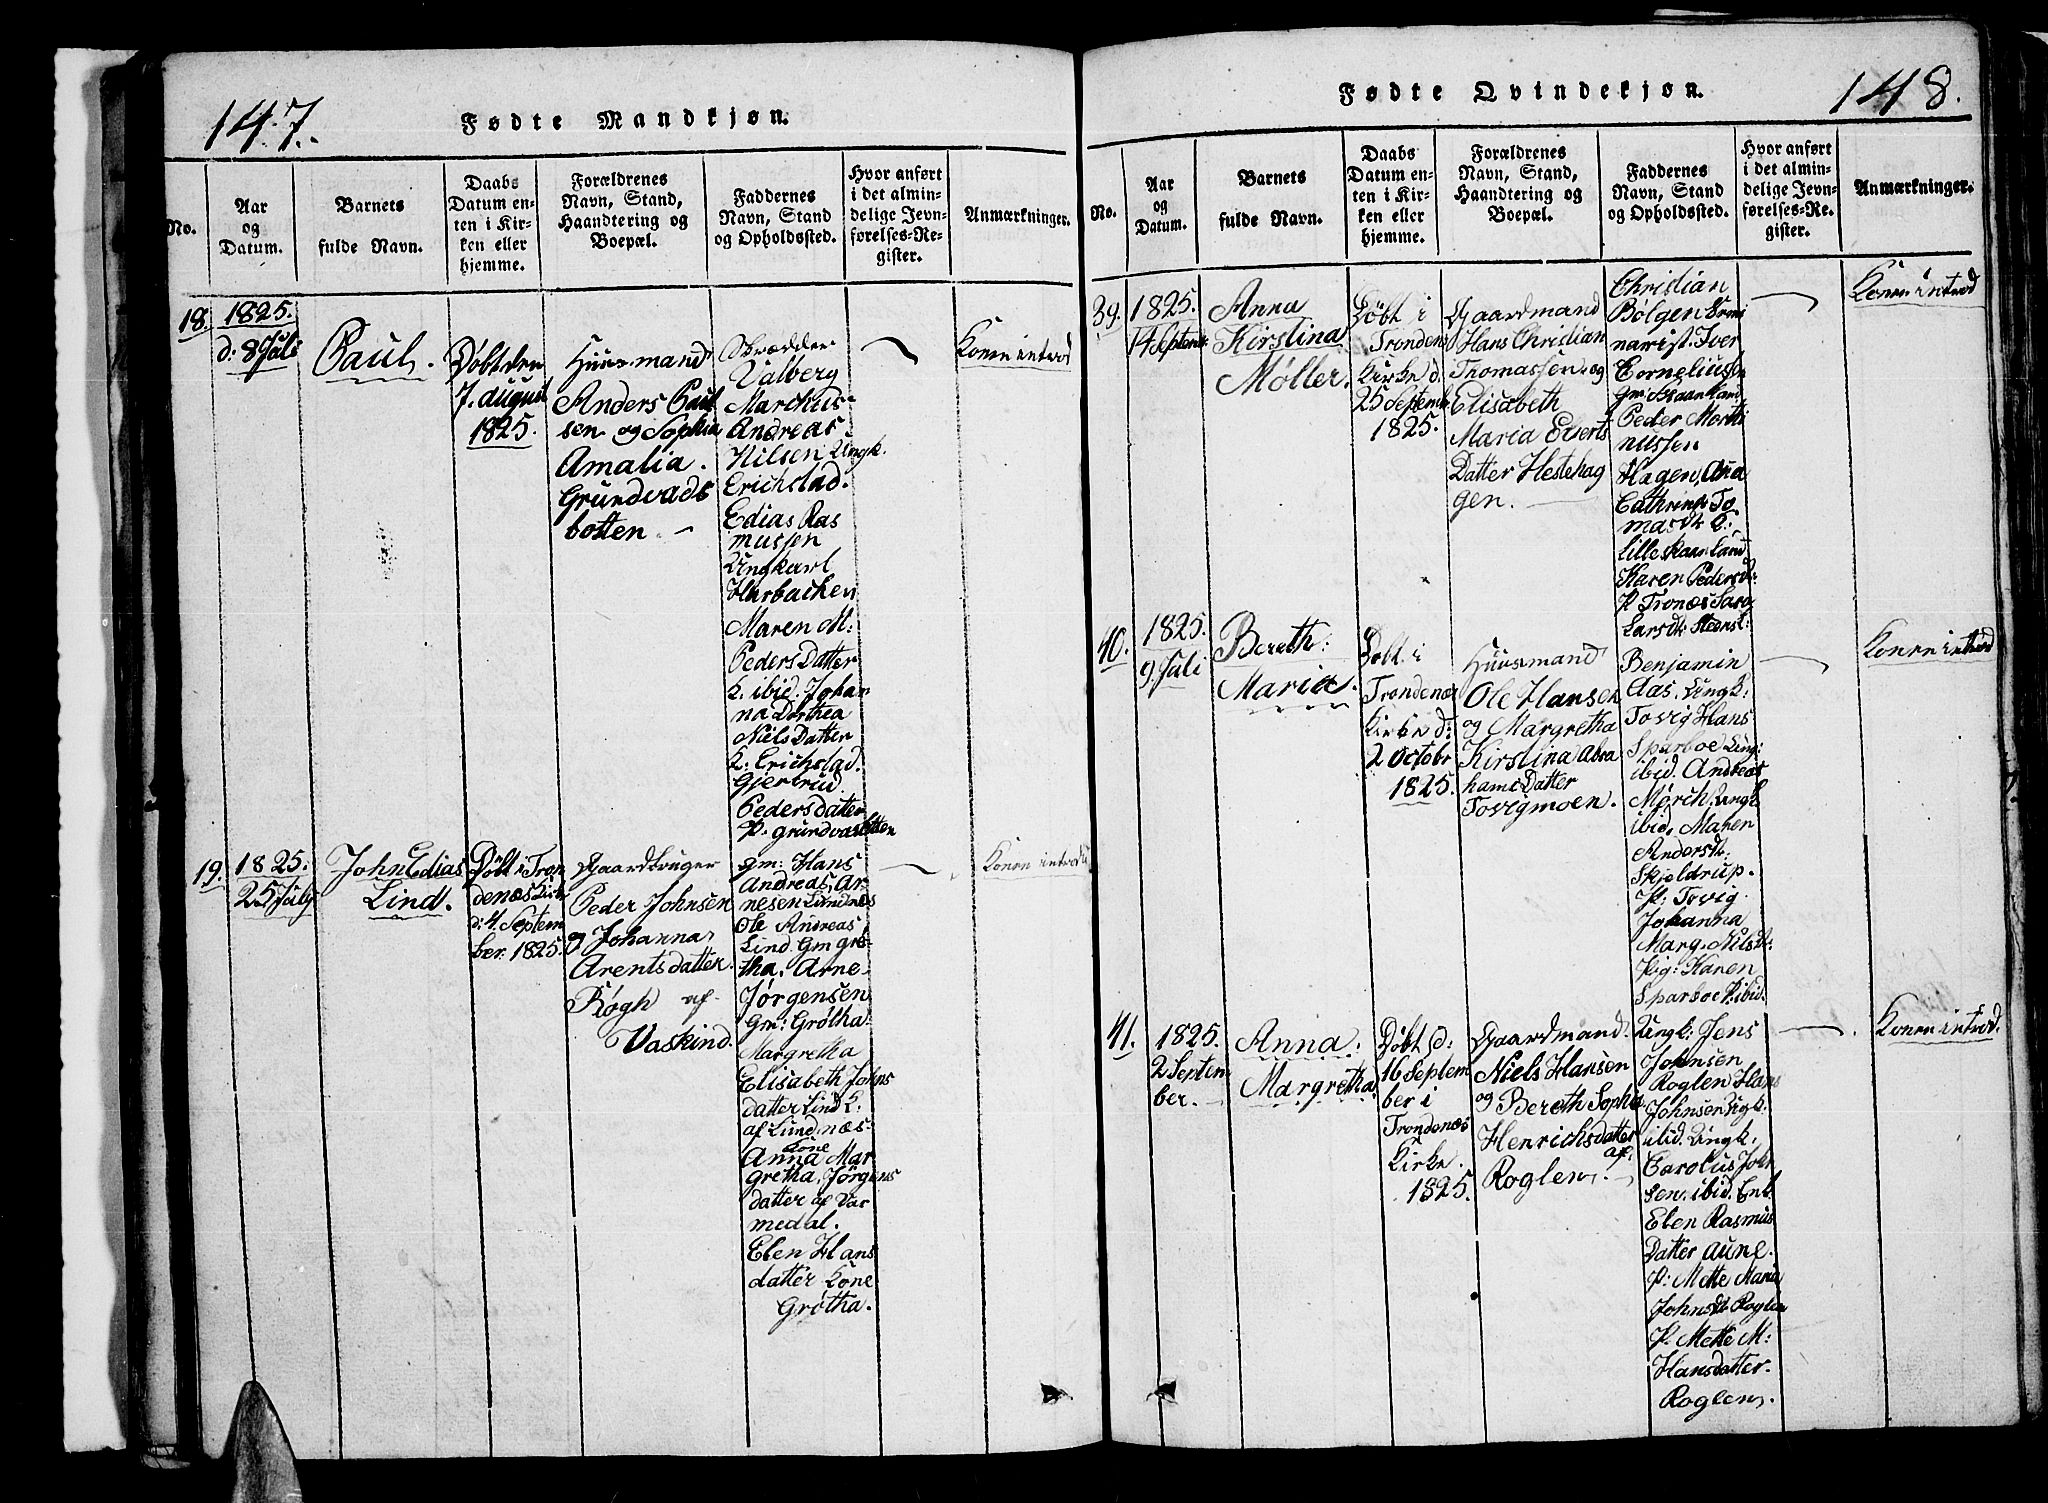 147.
Fødte Mandkjøn.
No.
Aar
og
Datum.
Barnets
fulde Navn.
Daabs
Datum en-
ten i Kir-
ken eller
hjemme.
Forældrenes
Navn, Stand,
Haandtering og
Boepæl.
Faddernes
Navn, Stand
og Opholdssted.
Hvor anført
i det almin-
delige Jevn-
førelses-Re-
gister.
Anmærkninger.
18.
1825.
d: 8 Juli
Paul.
Døbt den
7. august
1825.
Huusmand
Anders Paul
sen og Sophia
Amalia.
Grundvads
botten. —
Skrædder
Valberg
Marckus-
Andreas
Nilsen Ungk.
Erichstad.
Edias Ras
mussen
Ungkarl
Harbachen
Maren M:
Peders Datter
K. ibid. Johan
na Dorthea
Niels Datter
K. Erichstad.
Gjertrud
Pedersdatter
P. grundvasbotten
Konen introd
19.
1825.
25 July
John Edias
Lind.
Døbt i Tron
denæs Kirke
d: 4. Septem
ber. 1825.
Gaardbruger
Peder Johnsen
og Johanna
Arentsdatter
Røgh af
Vaskind.
gm: Hans
Andreas, Ar
nesen Lundnæs
Ole Andreas
Lind. Gm grø-
tha. Arne
Jørgensen
Gm: Grøtha.
Margretha
Elisabeth Johns
datter Lind K:
af Lundnæs-
Kone
Anna Mar
gretha, Jørgens
datter af Var
medal.
Elen Hans
datter Kone
Grøtha.
Konen introd
148.
Fødte Qvindekjøn.
No.
Aar
og
Datum.
Barnets
fulde Navn.
Daabs
Datum en-
ten i Kir-
ken eller
hjemme.
Forældrenes
Navn, Stand,
Haandtering og
Boepæl.
Faddernes
Navn, Stand
og Opholdssted.
Hvor anført
i det almin-
delige Jevn-
førelses-Re-
gister.
Anmærkninger.
39.
1825.
14 Septemb:
Anna
Kirstina
Møller.
Døbt i
Trondenæs
Kirke d.
25 Septemb
1825.
Gaardmand
Hans Christian
Thomassen og
Elisabeth
Maria Everts
Datter Hestehag
gen.
Christian
Bølgen
narist. Iver
Corneliussen
Peder Morti
nussen
Hagen, Ana
Cathrina To
masdt. K:
Lilleskars Land
Karen Pedersdt:
P Tronæs Sara
Larsdt:
Konen introd
40.
1825.
9. Juli
Bereth:
Maria.
Døbt i
Trondenæs
Kirke d:
2 Octobr
1825.
Huusmand
Ole Hansen
og Margretha
Kirstina Abra
hams Datter
Tovigmoen.
Benjamin
Aas. Ungk:
Tovig Hans
Sparboe Ung:
ibid. Andreas
Mørch, Ungk
ibid. Maren
Andersdt.
Skjeldrup.
P: Tovig.
Johanna
Marg. Nilsdt:
Pig: Karen
Sparboe P. ibid.
Konen introd
41.
1825.
2 Septem
ber.
Anna:
Margretha
Døbt d:
16 Septem
ber i
Trondenæs
Kirke.
1825.
Gaardmand.
Niels Hansen
og Bereth Sopha
Henrichsdatter
af:
Roglen.
Ungk: Jens
Johnsen
Roglen Hans
Johnsen Ugk.
ibid. Ungk.
Carolus John
sen. ibid. Enk.
Elen Rasmus
Datter Aune.
P: Mette Maria
Johnsdt Roglen
P. Mette M:
Hansdatter.
Roglen.
Konen introd.